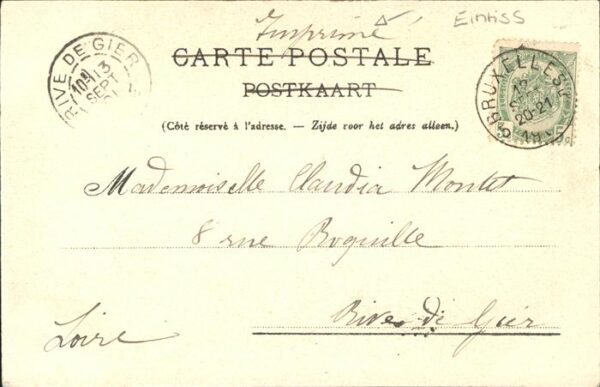 Imprimé
Eintiss
CARTE POSTALE
POSTKAART
(Côté réservé à l'adresse. — Zijde voor het adres alleen.)
RIVE DE GIER
13
SEPT
BRUXELLES
12
20-21
Mademoiselle Claudia Montet
8 rue Roquille
Rive de Gier
Loire